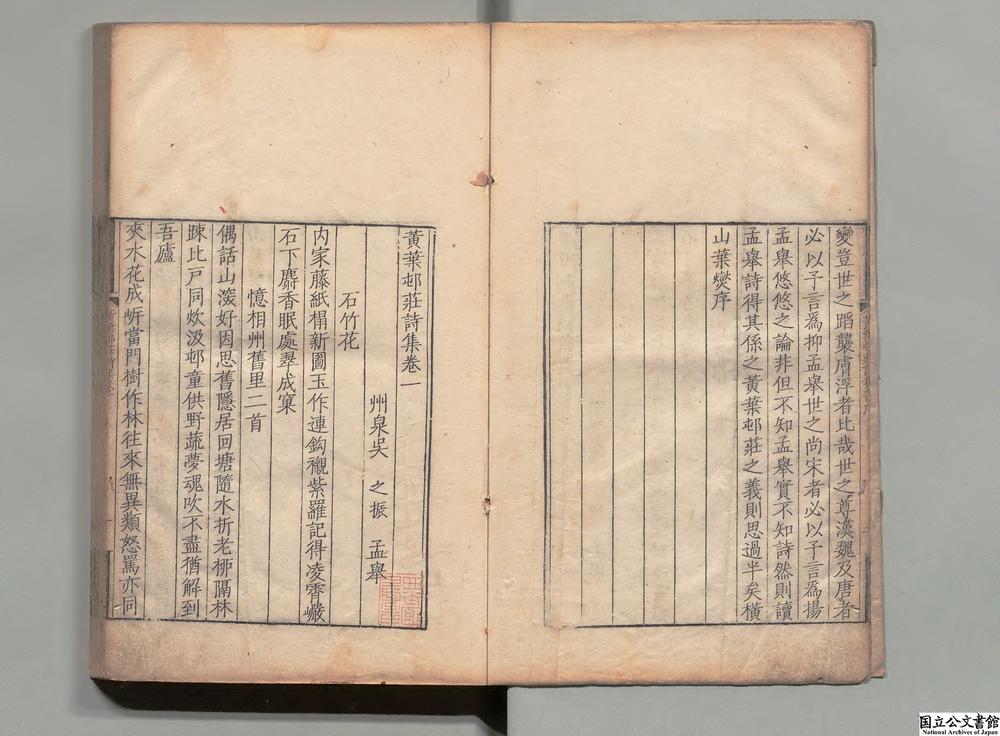 變豈世之蹈襲膚浮者比哉世之尊漢魏及唐者
必以予言爲抑孟舉世之尚宋者必以予言爲揚
孟舉悠悠之論非但不知孟舉實不知詩然則讀
孟舉詩得其係之黃葉邨莊之義則思過半矣橫
山葉燮序
黃葉邨莊詩集卷一
州泉吳 之振 孟舉
石竹花
内家藤紙榻新圖玉作連鈎襯紫羅記得凌霄巖
石下麝香眠處翠成窠
憶相州舊里二首
偶話山滾好因思舊隱居回塘隨水折老桺隔林
踈比戸同炊汲邨童供野蔬夢魂吹不盡猶解到
吾廬
夾水花成㘨當門樹作林往來無異類怒罵亦同
国立公文書館
National Archives of Japan